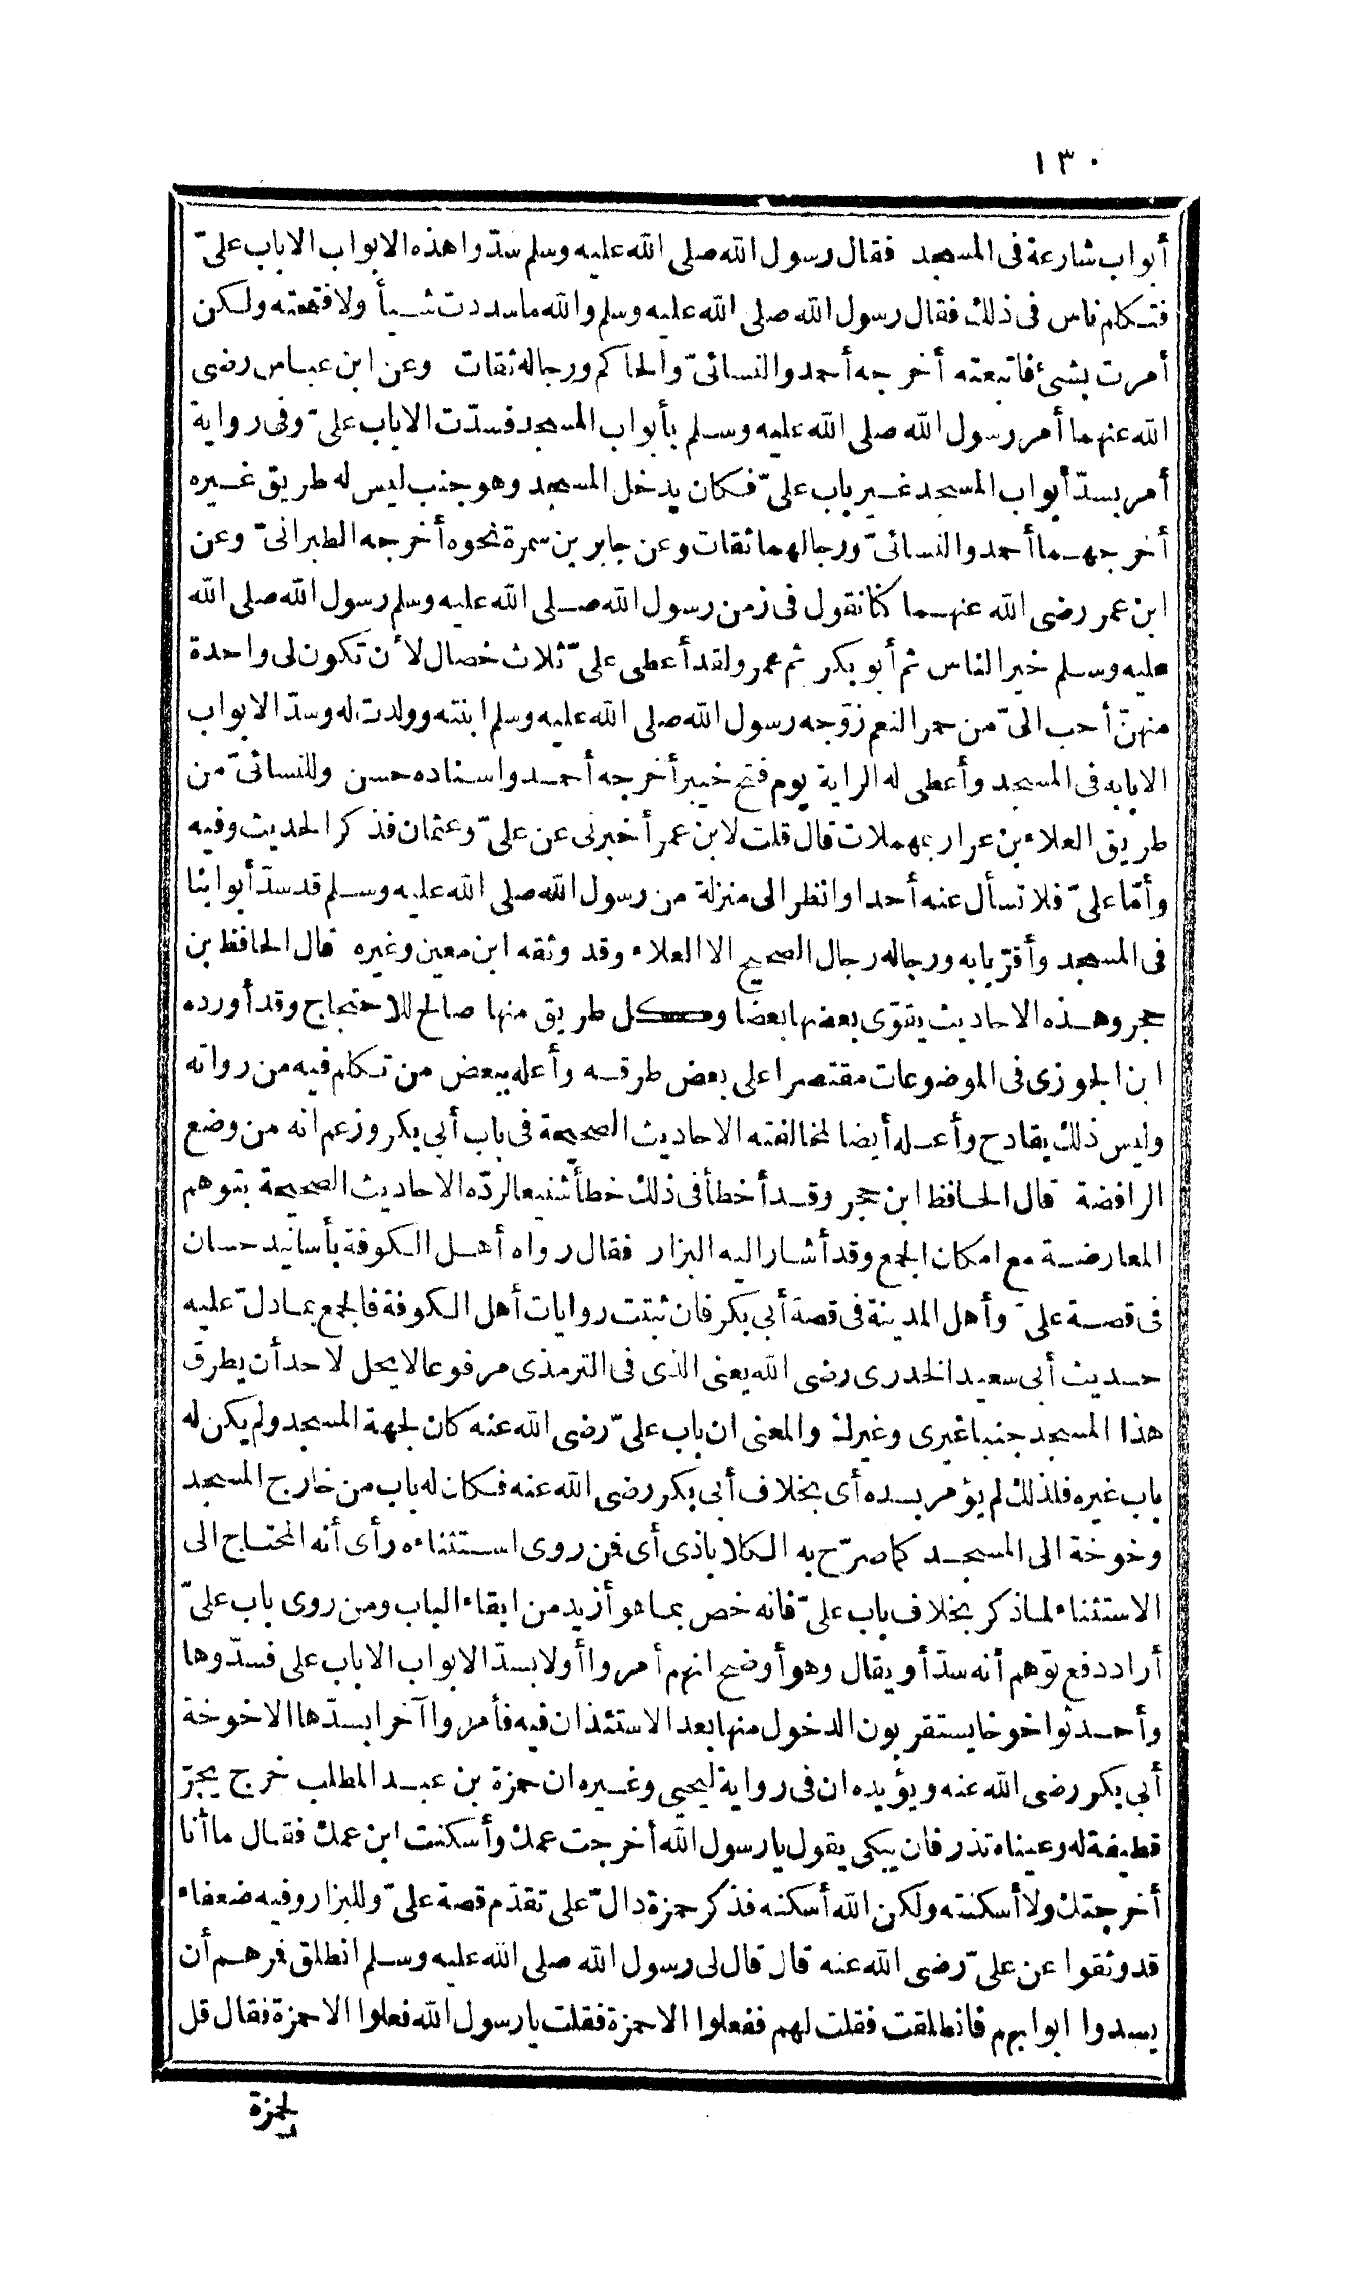 ١٣٠
أبواب شارعة فى المسجد فقال رسول الله صلى الله عليه وسلم سدّوا هذه الابواب الا باب علىّ
فتكلم ناس فى ذلك فقال رسول الله صلى الله عليه وسلم والله ما سددت شيأ ولا فتحته ولكن
أمرت بشئ فاتبعته أخرجه أحمد والنسائىّ والحاكم ورجاله ثقات وعن ابن عباس رضى
الله عنهما أمر رسول الله صلى الله عليه وسلم بأبواب المسجد فسدّت الا باب علىّ وفى رواية
أمر بسدّ أبواب المسجد غير باب علىّ فكان يدخل المسجد وهو جنب ليس له طريق غيره
أخرجهما أحمد والنسائىّ ورجالهما ثقات وعن جابر بن سمرة نحوه أخرجه الطبرانىّ وعن
ابن عمر رضى الله عنهما كنا نقول فى زمن رسول الله صلى الله عليه وسلم رسول الله صلى الله
عليه وسلم خير الناس ثم أبو بكر ثم عمر ولقد أعطى علىّ ثلاث خصال لأن تكون لى واحدة
منهنّ أحب الىّ من حمر النعم زوّجه رسول الله صلى الله عليه وسلم ابنته وولدت له وسدّ الابواب
الا بابه فى المسجد وأعطى له الراية يوم فتح خيبر أخرجه أحمد واسناده حسن وللنسائىّ من
طريق العلاء بن عرار بمهملات قال قلت لابن عمر أخبرنى عن علىّ وعثمان فذكر الحديث وفيه
وأمّا علىّ فلا تسأل عنه أحدا وانظر الى منزلة من رسول الله صلى الله عليه وسلم قد سدّ أبوابنا
فى المسجد وأقرّ بابه ورجاله رجال الصحيح الا العلاء وقد وثقه ابن معين وغيره قال الحافظ بن
حجر وهذه الاحاديث يقوّى بعضها بعضا وكل طريق منها صالح للاحتجاج وقد أورده
ابن الجوزى فى الموضوعات مقتصرا على بعض طرقه وأعله ببعض من تكلم فيه من رواته
وليس ذلك بقادح وأعله أيضا لمخالفته الاحاديث الصحيحة فى باب أبى بكر وزعم انه من وضع
الرافضة قال الحافظ ابن حجر وقد أخطأ فى ذلك خطأ شنيعا لردّه الاحاديث الصحيحة بتوهم
المعارضة مع امكان الجمع وقد أشار اليه البزار فقال رواه أهل الكوفة بأسانيد حسان
فى قصة علىّ وأهل المدينة فى قصة أبى بكر فان ثبتت روايات أهل الكوفة فالجمع بما دلّ عليه
حديث أبى سعيد الخدرى رضى الله يعنى الذى فى الترمذى مرفوعا لا يحل لاحد أن يطرق
هذا المسجد جنبا غيرى وغيرك والمعنى ان باب علىّ رضى الله عنه كان لجهة المسجد ولم يكن له
باب غيره فلذلك لم يؤمر بسده أى بخلاف أبى بكر رضى الله عنه فكان له باب من خارج المسجد
وخوخة الى المسجد كما صرّح به الكلاباذى أى فمن روى استثناءه رأى أنه المحتاج الى
الاستثناء لما ذكر بخلاف باب علىّ فانه خص بما هو أزيد من ابقاء الباب ومن روى باب علىّ
أراد دفع توّهم أنه سدّ أو يقال وهو أوضح انهم أمروا أولا بسدّ الابواب الا باب على فسدّوها
وأحدثوا خوخا يستقربون الدخول منها بعد الاستئذان فيه فأمروا آخرا بسدّها الا خوخة
أبى بكر رضى الله عنه ويؤيده ان فى رواية ليحيى وغيره ان حمزة بن عبد المطلب خرج يجرّ
قطيفة له وعيناه تذرفان يبكى يقول يا رسول الله أخرجت عمك وأسكنت ابن عمك فقال ما أنا
أخرجتك ولا أسكنته ولكن الله أسكنه فذكر حمزة دالّ على تقدّم قصة علىّ وللبزار وفيه ضعفاء
قد وثقوا عن علىّ رضى الله عنه قال قال لى رسول الله صلى الله عليه وسلم انطلق فرهم أن
يسدوا ابوابهم فانطلقت فقلت لهم ففعلوا الا حمزة فقلت يا رسول الله فعلوا الا حمزة فقال قل
لحمزة